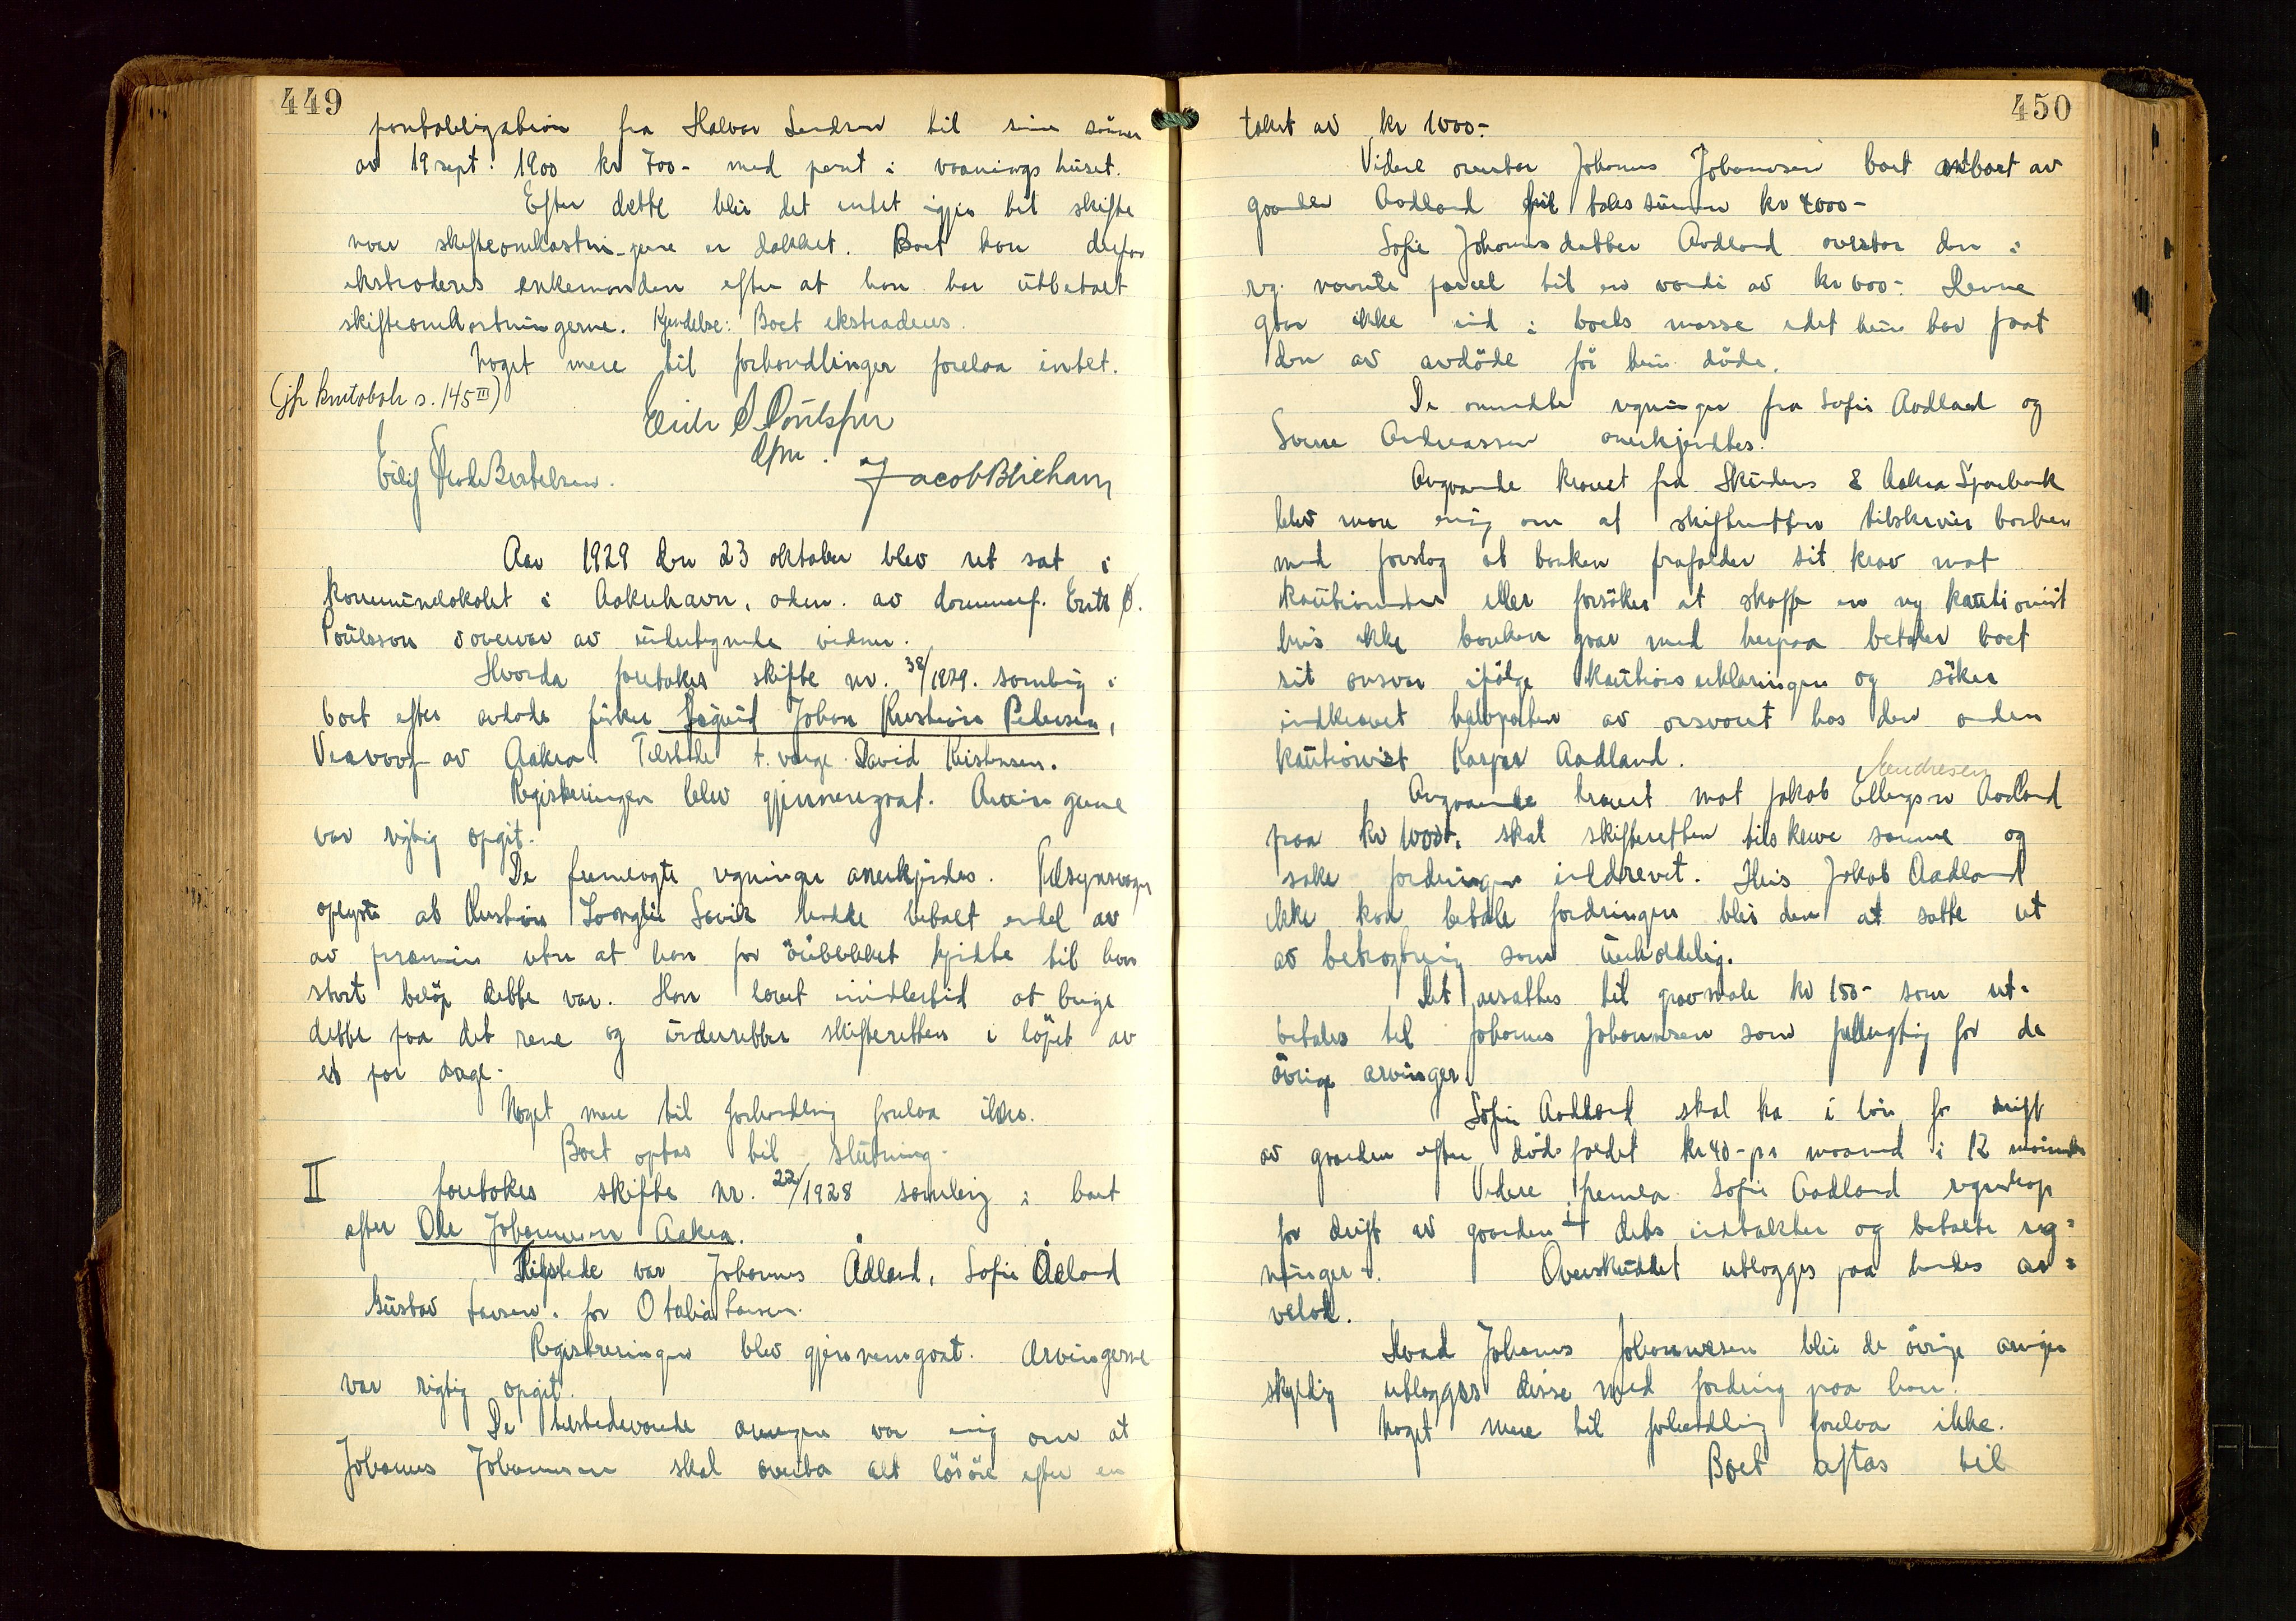 449
pantobligation fra Halvor Sendrew til sine sönner
av 19 sept: 1900 kr 700- med pant i vaaningshuset.
Efter dette blir det intet igjen til skifte
naar skifteomkostningene er dækket. Boet kan derfor
ekstraderes enkemanden efter at han har utbetalt
skifteomkostningerne. Kjendelse: Boet ekstraderes.
Noget mere til forhandlinger forelaa intet.
(jfr kontobok s. 145 III)
Erik S. Poulsson
Eilif Bertelsen.
Jacob Blikhavn
Aar 1929 den 23 oktober blev ret sat i
kommunelokalet i Aakrehavn, adm. av dommerf. Erik S.
Poulsson i overvær av undertegnede vidner.
Hvorda foretokes skifte nr. 38/1929. samling i
boet efter avdöde fisker Sigurd Johan Kristian Pedersen,
av Aakra Tilstede t. verge David Kristensen.
Registreringen blev gjennemgaat. Arvingerne
var rigtig opgit.
De fremlagte regninger anerkjendes. Tilsynsverge
oplyste at Kristian Sævik hadde betalt endel av
av premien uten at han for öieblikket kjendte til hvor
stort belöp dette var. Han lovet imidlertid at bringe
dette paa det rene og underrette skifteretten i löpet av
et par dage.
Noget mere til forhandling forelaa ikke.
Boet optas til slutning.
II foretokes skifte nr. 22/1928 samling i boet
efter Ole Johannesen Aakra.
Tilstede var Johannes Ådland, Sofie Ådland
Gustav Larsen. for Otalia Larsen.
Registreringen blev gjennemgaat. Arvingerne
var rigtig opgit.
De tilstedeværende arvinger var enig om at
Johannes Johannesen skal overta alt lösöre efter en
450
takst av kr 1000.-
Videre overtar Johannes Johannesen boet av
gaarden Aadland til takstsummen kr 4000-
Sofie Johannesdatter Aadland overtar den i
reg. nævnte parcel til en værdi av kr 600-. Denne
gaar ikke ind i boets masse idet hun har faat
den av avdöde för hun döde.
De anmeldte regninger fra Sofie Aadland og
Sverre Andreassen anerkjendtes.
Angaaende kravet fra Skudenes & Aakra Sparebank
blev man enig om at skifteretten tilskriver banken
med forslag at banken frafalder sit krav mot
kautionisten eller forsöker at skaffe en ny kautionist
hvis ikke banken gaar med herpaa betaler boet
sit ansvar ifölge kautionserklæringen og söker
indkrævet halvparten av ansvaret hos den anden
kautionist Kasper Aadland.
Andresen
Angaaende kravet mot Jakob Ellingsen Aadland
paa kr 1000-. skal skifteretten tilskrive samme og
söke fordringen inddrevet. Hvis Jakob Aadland
ikke kan betale fordringen blir den at sætte ut
av betragtning som uerholdelig.
Det avsættes til gravmæle kr 150- som ut-
betales til Johannes Johannesen som fuldmægtig for de
övrige arvinger.
Sofie Aadland skal ha i lön for drift
av gaarden efter dödsfaldet kr 40- pr maaned i 12 maaneder
Videre fremla Sofie Aadland regnskap
for drift av gaarden + dets indtækter og betalte reg-
ninger-. Overskuddet utlægges paa hendes ar-
velod.
Hvad Johannes Johannesen blir de övrige arvinger
skyldig utlægges disse med fordring paa ham.
Noget mere til forhandling forelaa ikke.
Boet optas til